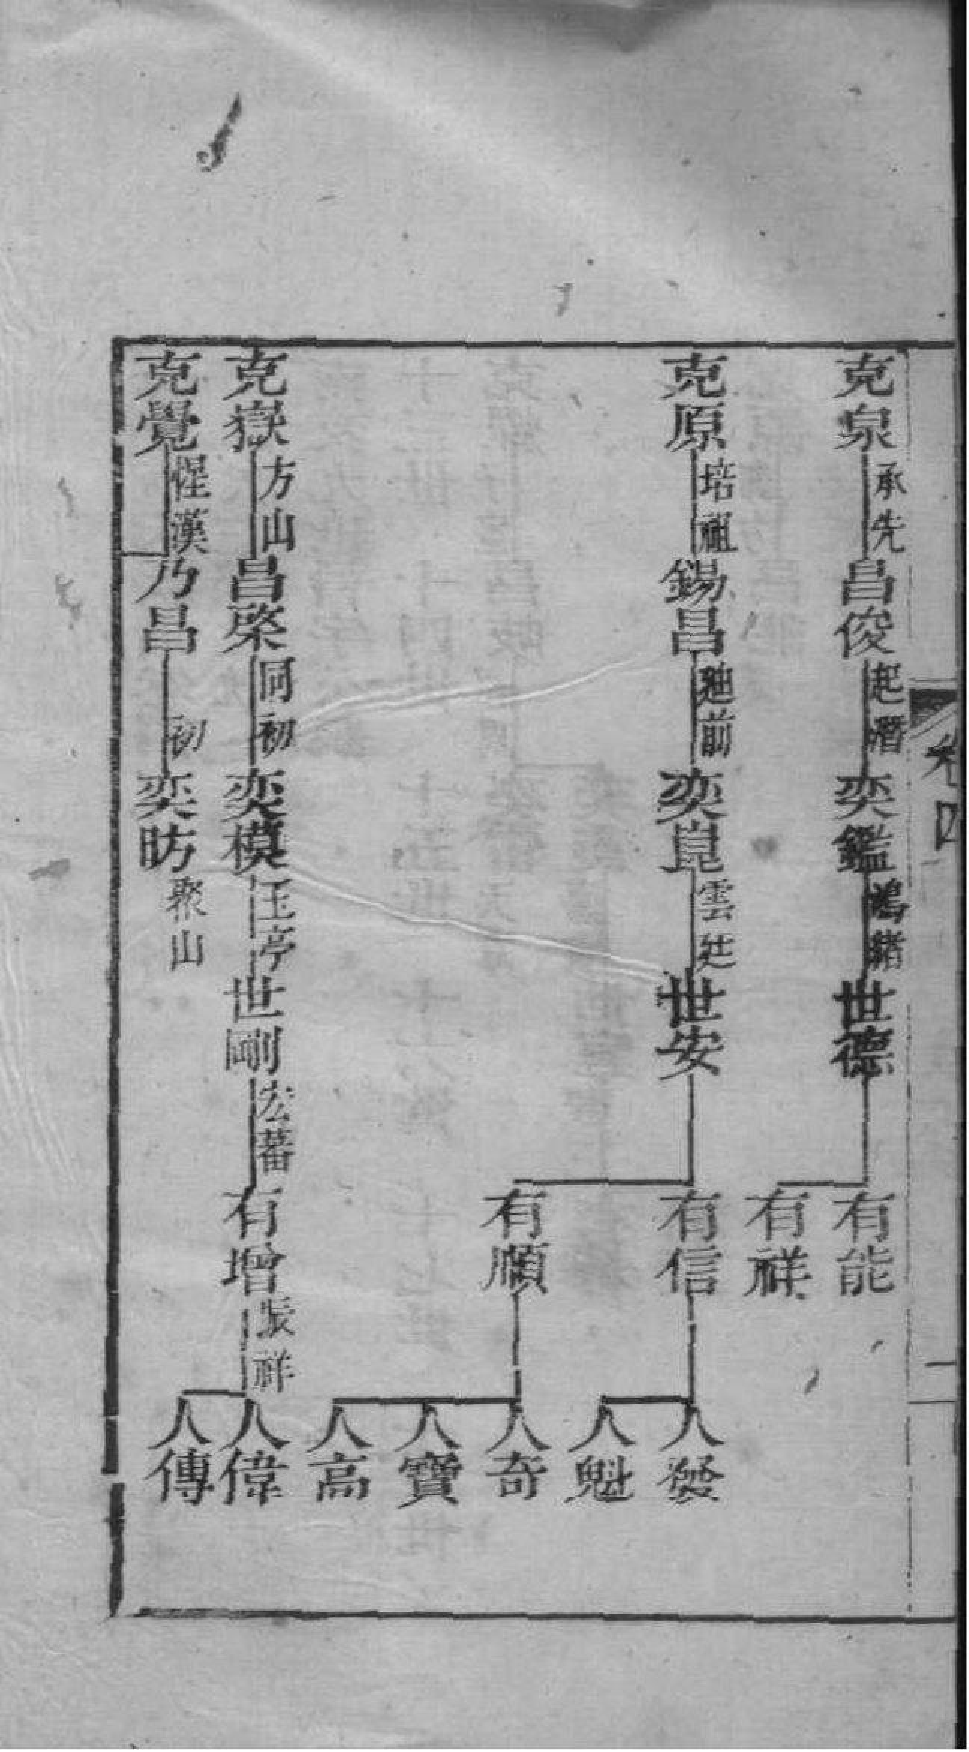 卷四
二
克泉 承先 昌俊 起潛 奕鑑 鴻緒 世德 有能
有祥
克原 培祖 錫昌 前 奕崑 雲廷 世安 有信 人發
人魁
有順 人奇
人寶
人高
克嶽 方山 昌棨 同初 奕模 玉亭 世剛 宏蕃 有增 振祥 人偉
人傳
克覺 惺漢 乃昌 初 奕昉 聚山